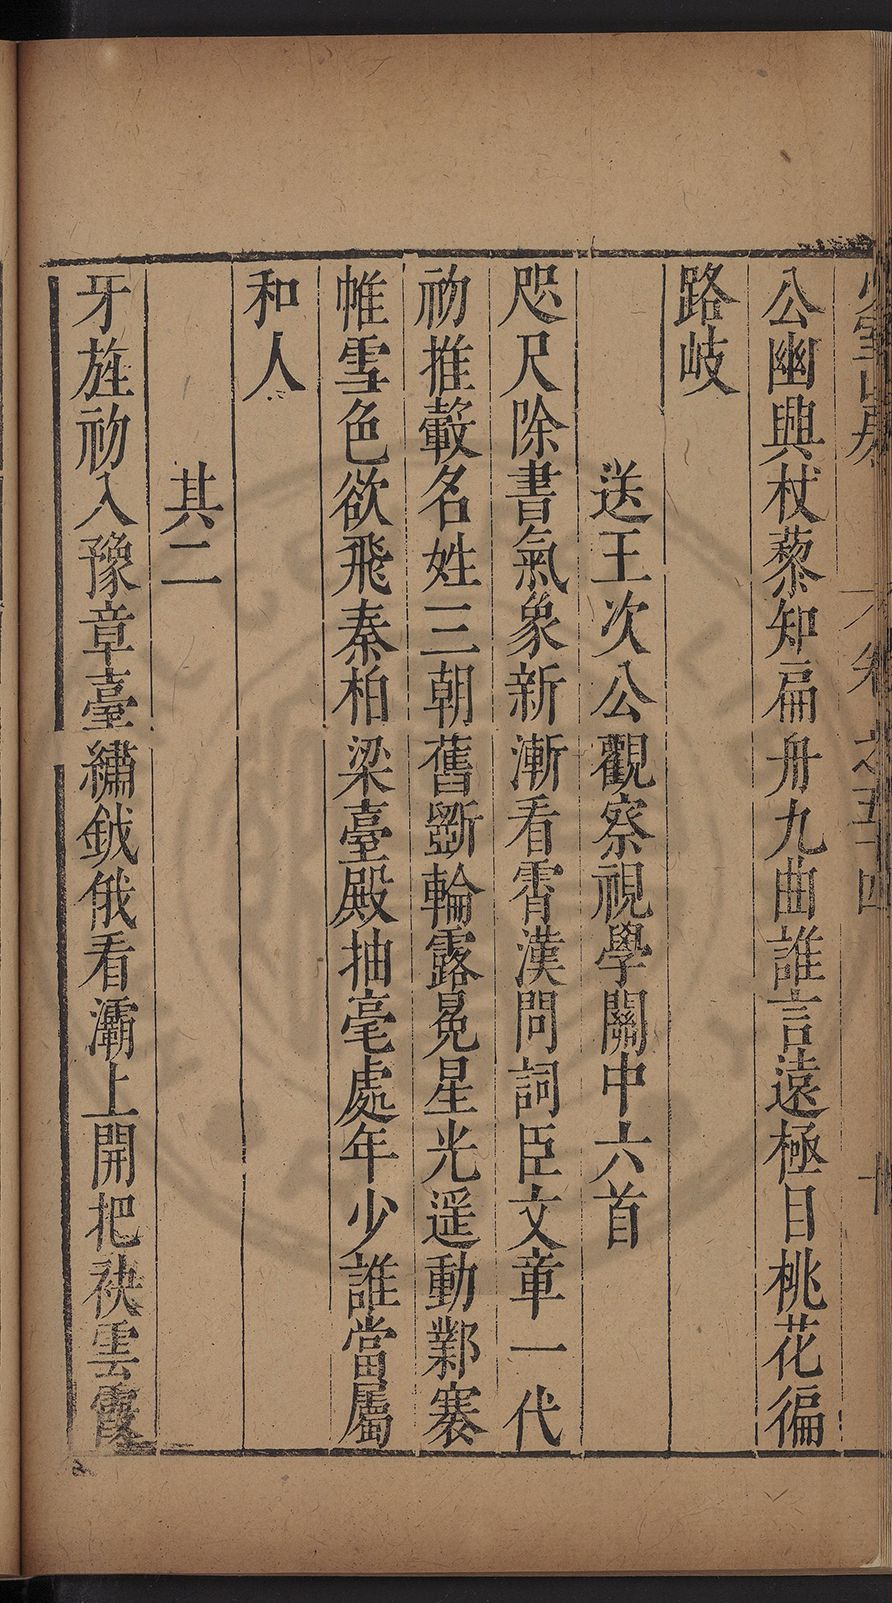 卷之五十四
公幽興杖藜知扁舟九曲誰言遠極目桃花徧
路岐
送王次公觀察視學關中六首
咫尺除書氣象新漸看霄漢問詞臣文章一代
初推轂名姓三朝舊斵輪露冕星光遥動鄴褰
帷雪色欲飛秦柏梁臺殿抽毫處年少誰當屬
和人
其二
牙旌初入豫章臺繡鉞俄看灞上開把袂雲霞